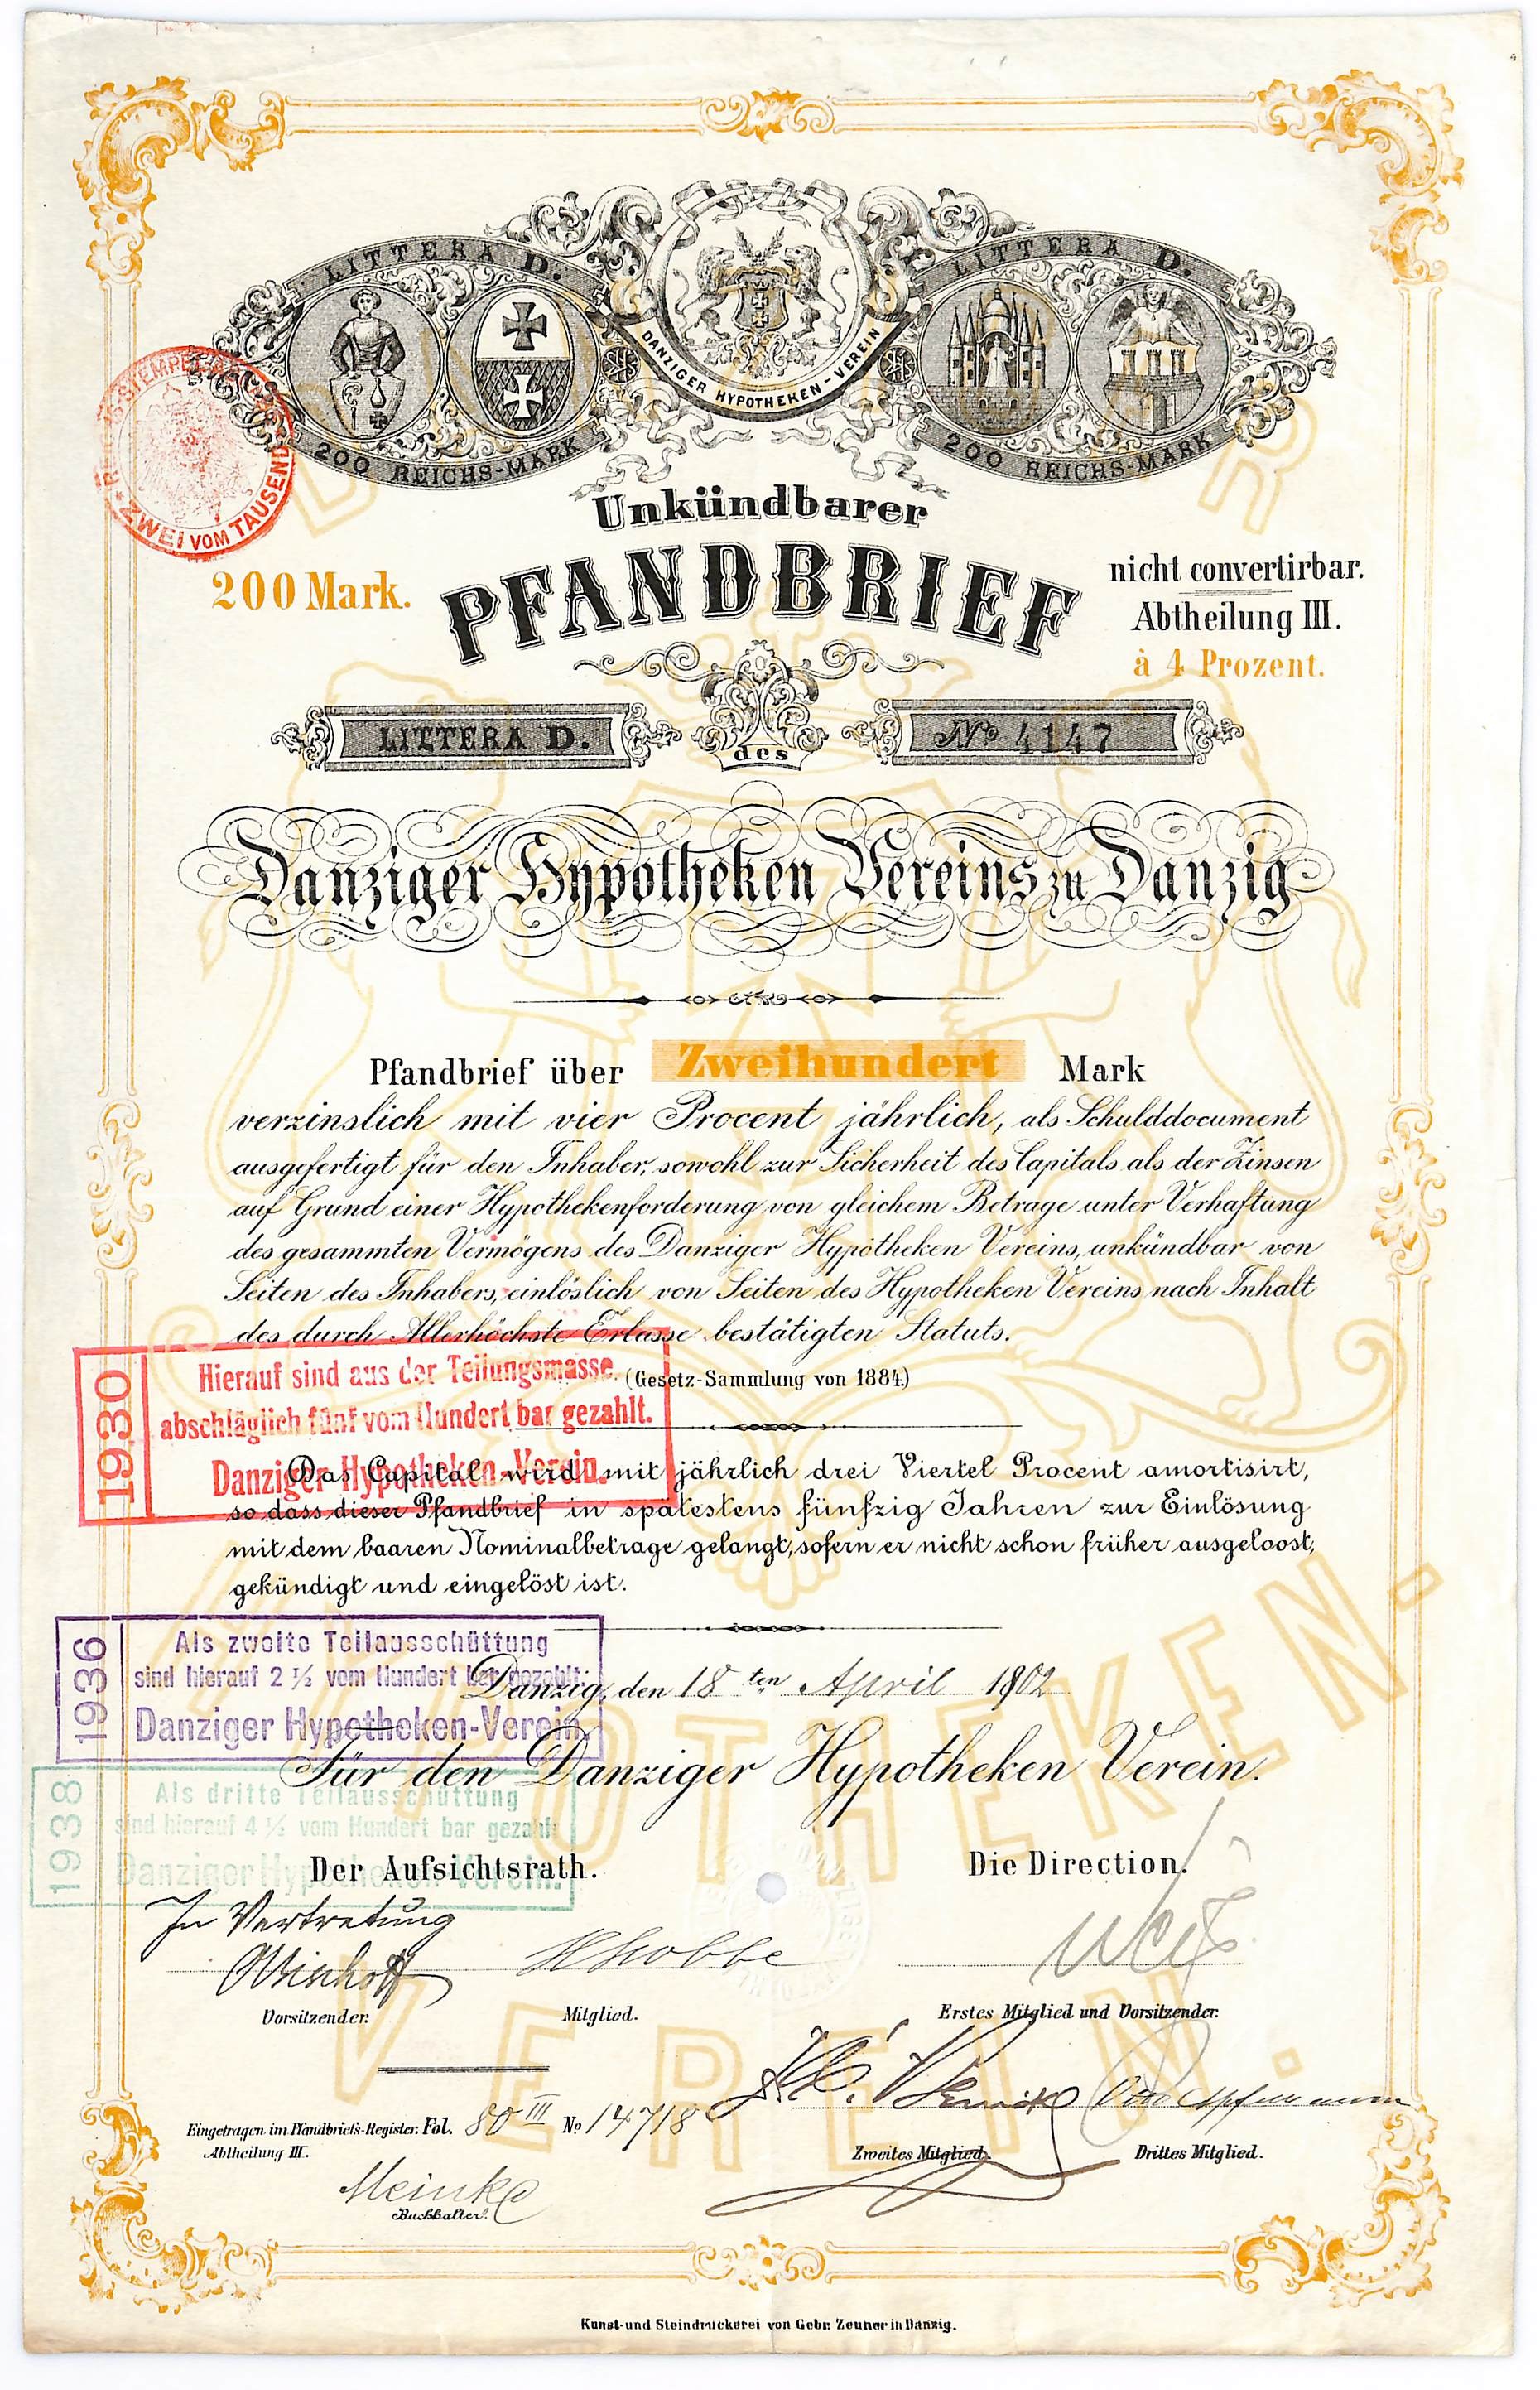 LITTERA D.
LITTERA D.
DANZIGER HYPOTHEKEN-VEREIN
200 REICHS-MARK
200 REICHS-MARK
ZWEI VOM TAUSEND
Unkündbarer
200 Mark.
PFANDBRIEF
nicht convertirbar.
Abtheilung III.
à 4 Prozent.
LITTERA D.
des
No 4147
Danziger Hypotheken Vereins zu Danzig
Pfandbrief über Zweihundert Mark
verzinslich mit vier Procent jährlich, als Schulddocument
ausgefertigt für den Inhaber, sowohl zur Sicherheit des Capitals als der Zinsen
auf Grund einer Hypothekenforderung von gleichem Betrage unter Verhaftung
des gesammten Vermögens des Danziger Hypotheken Vereins, unkündbar von
Seiten des Inhabers, einlöslich von Seiten des Hypotheken Vereins nach Inhalt
des durch Allerhöchste Erlasse bestätigten Statuts.
(Gesetz-Sammlung von 1884.)
1930
Hierauf sind aus der Teilungsmasse
abschläglich fünf vom Hundert bar gezahlt.
Danziger Hypotheken-Verein.
Das Capital wird mit jährlich drei Viertel Procent amortisirt,
so dass dieser Pfandbrief in spätestens fünfzig Jahren zur Einlösung
mit dem baaren Nominalbetrage gelangt, sofern er nicht schon früher ausgeloost,
gekündigt und eingelöst ist.
1936
Als zweite Teilausschüttung
sind hierauf 2 ½ vom Hundert bar gezahlt:
Danziger Hypotheken-Verein.
Danzig, den 18ten April 1902
Für den Danziger Hypotheken Verein.
1938
Als dritte Teilausschüttung
sind hierauf 4 ½ vom Hundert bar gezahlt
Danziger Hypotheken-Verein.
Der Aufsichtsrath.
Die Direction.
In Vertretung
Vorsitzender.
Mitglied.
Erstes Mitglied und Vorsitzender.
Eingetragen im Pfandbriefs-Register: Fol. 80 III No 14718
Abtheilung III.
Zweites Mitglied.
Drittes Mitglied.
Meinke
Buchhalter.
Kunst- und Steindruckerei von Gebr. Zeuner in Danzig.